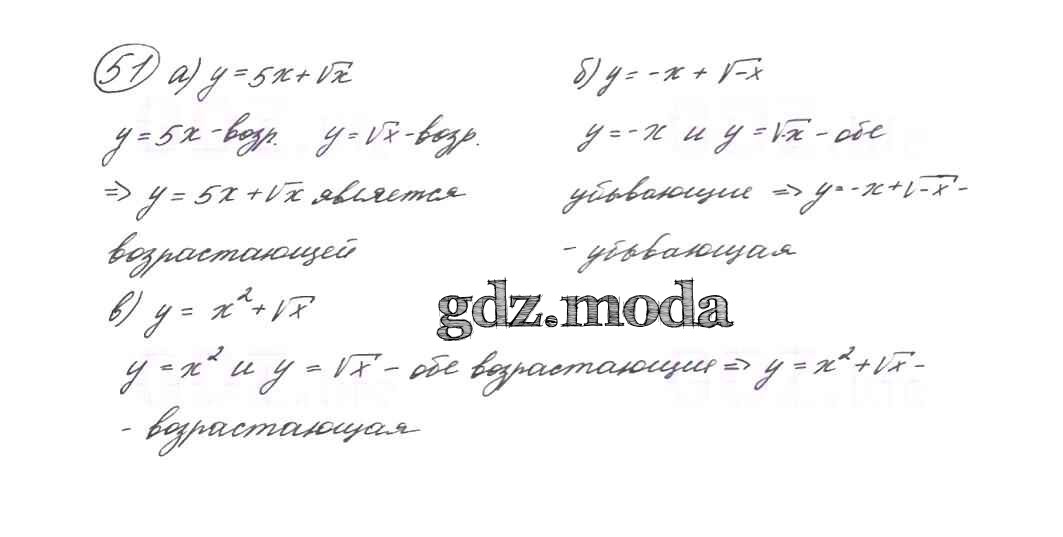 51 а) y = 5x + √x
y = 5x - возр. y = √x - возр.
=> y = 5x + √x является
возрастающей
б) y = -x + √-x
y = -x и y = √-x - обе
убывающие => y = -x + √-x -
- убывающая
в) y = x² + √x
gdz.moda
y = x² и y = √x - обе возрастающие => y = x² + √x -
- возрастающая